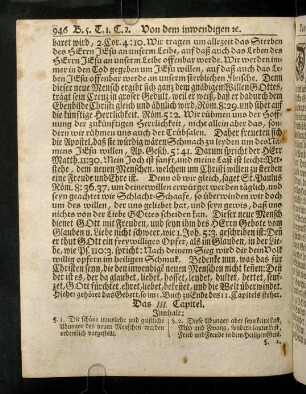 946 B. 5. T. 1. C. 2. Von dem inwendigen ꝛc.
baret wird, 2. Cor. 4: 10. Wir tragen um allezeit das Sterben
des HErrn JEsu an unserm Leibe, auf daß auch das Leben des
HErrn JEsu an unserm Leibe offenbar werde. Wir werden im-
mer in den Tod gegeben um JEsu willen, auf daß auch das Le-
ben JEsu offenbar werde an unserm sterblichen Fleische. Denn
dieser neue Mensch ergibt sich gantz dem gnädigen Willen GOttes,
trägt sein Creutz in grosser Gedult, weil er weiß, daß er dadurch dem
Ebenbilde Christi gleich und ähnlich wird, Röm. 8: 29. und sihet auf
die künftige Herrlichkeit. Röm. 5: 2. Wir rühmen uns der Hoff-
nung der zukünftigen Herrlichkeit, nicht allein aber das, son-
dern wir rühmen uns auch der Trübsalen. Daher freueten sich
die Apostel, daß sie würdig wären Schmach zu leyden um des Na-
mens JEsu willen, Ap. Gesch. 5: 41. Darum spricht der HErr
Matth. 11: 30. Mein Joch ist sanft, und meine Last ist leicht: Ver-
stehe, dem neuen Menschen, welchem um Christi willen zu sterben
eine Freude und Ehre ist. Dem ob wir gleich, saget St. Paulus
Röm. 8: 36. 37. um deinet willen erwürget werden täglich, und
seyn geachtet wie Schlacht-Schaafe, so überwinden wir doch
um des willen, der uns geliebet hat, und seyn gewiß, daß uns
nichts von der Liebe GOttes scheiden kan. Dieser neue Mensch
dienet GOtt mit Freuden, und seyn ihm des HErrn Gebote vom
Glauben u. Liebe nicht schwer, wie 1. Joh. 5: 3. geschrieben ist: Den
er thut GOtt ein freywilliges Opfer, als im Glauben, in der Lie-
be, wie Ps. 110: 3. spricht: Nach deinem Sieg wird dir dein Volk
willig opfern im heiligen Schmuk. Bedenke nun, was das für
Christen seyn, die den inwendigen neuen Menschen nicht kennen: Dis
der ist der neue Mensch, der da glaubet, liebet, hoffet, leydet, duldet, betet, seuf-
zet, GOtt fürchtet, ehret, liebet, bekennet, und die Welt überwindet.
Hieher gehöret das Gebett, so im 1. Buch zu Ende des 11. Capitels stehet.
Das III. Capitel.
Innhalt:
§. 1. Die schöne innerliche und geistliche
Übungen des neuen Menschen werden
ordentlich vorgestellt.
§. 2. Diese Übungen aber seyn keine Last,
Müh und Zwang, sondern lauter Lust,
Fried und Freude in dem Heiligen Geist.
§. 1.